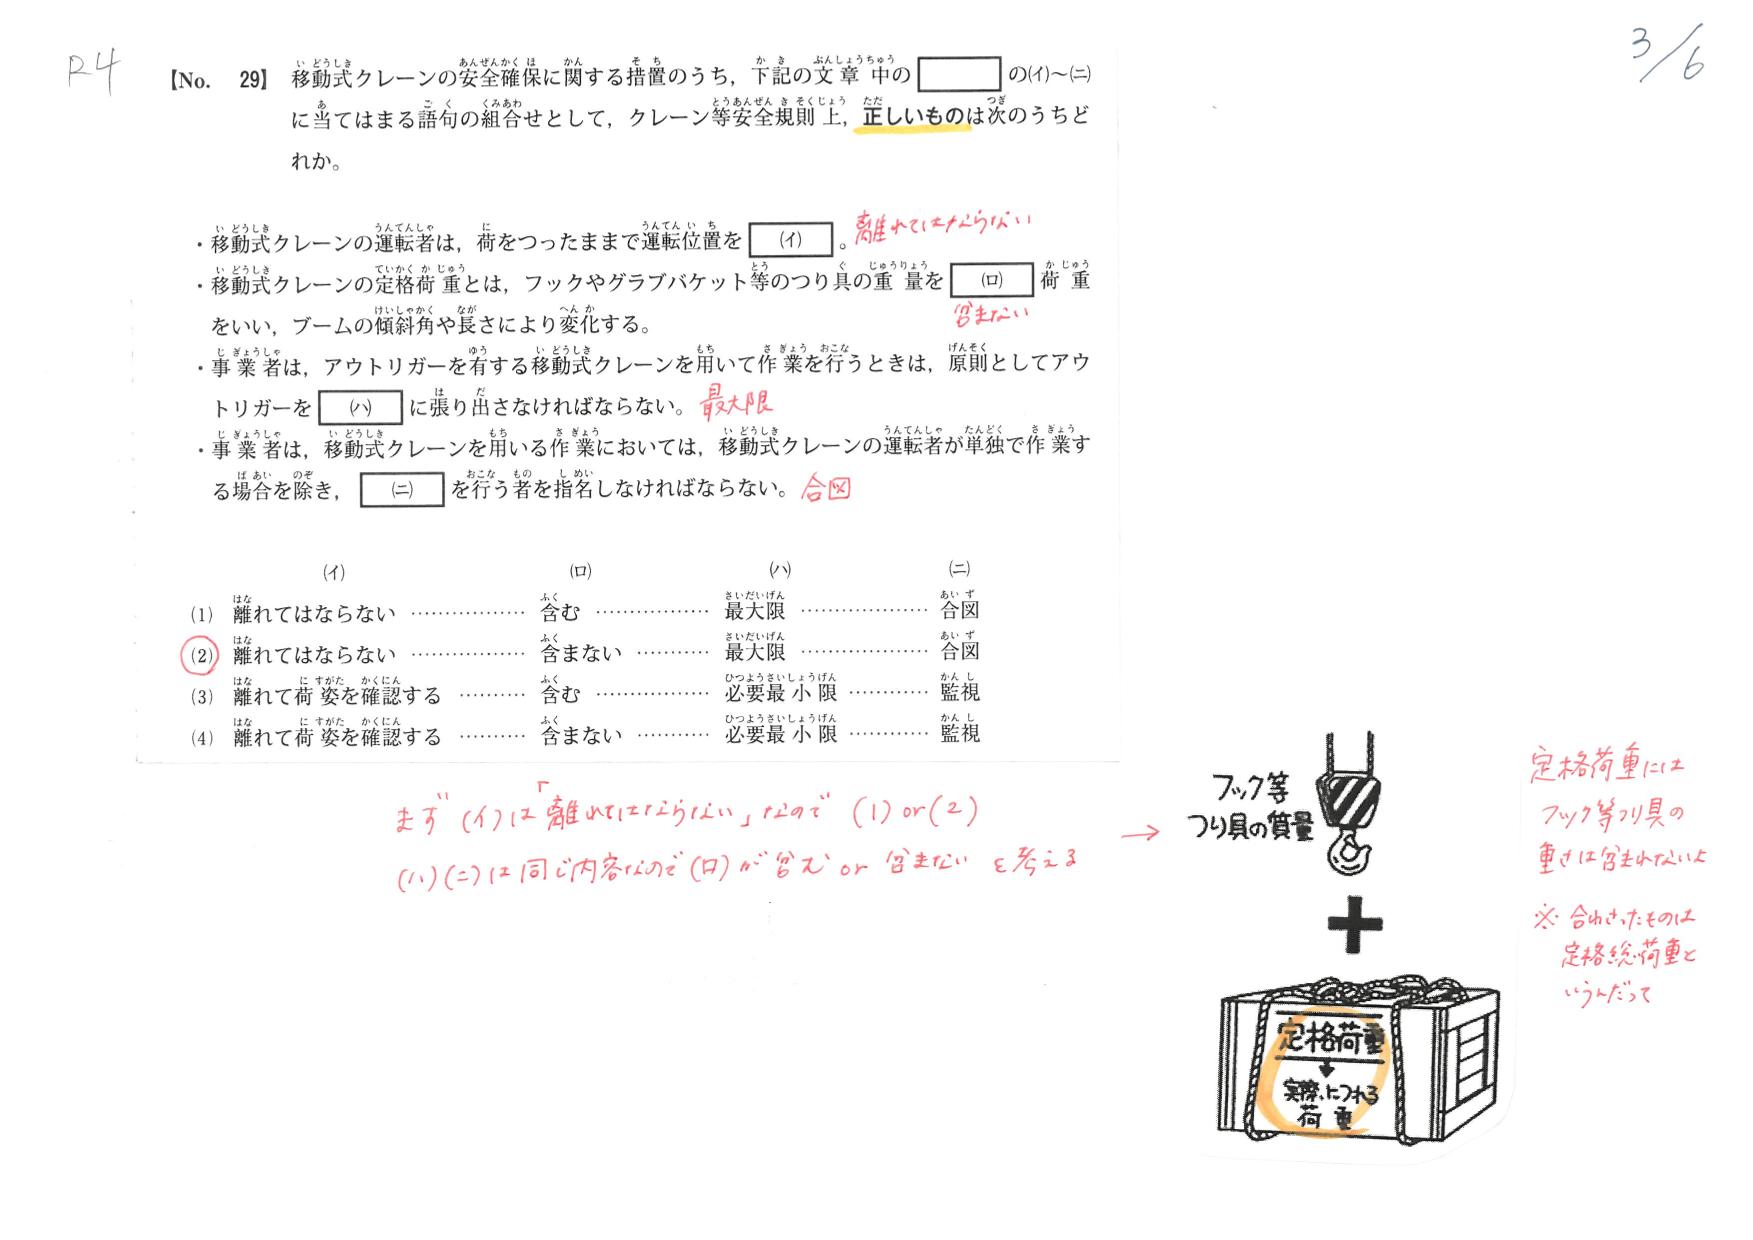 R4
3/6
【No. 29】 移動式クレーンの安全確保に関する措置のうち，下記の文章中の　　　の(イ)～(ニ)
に当てはまる語句の組合せとして，クレーン等安全規則上，正しいものは次のうちど
れか。
・移動式クレーンの運転者は，荷をつったままで運転位置を (イ) 。離れてはならない
・移動式クレーンの定格荷重とは，フックやグラブバケット等のつり具の重量を (ロ) 荷重
含まない
をいい，ブームの傾斜角や長さにより変化する。
・事業者は，アウトリガーを有する移動式クレーンを用いて作業を行うときは，原則としてアウ
トリガーを (ハ) に張り出さなければならない。最大限
・事業者は，移動式クレーンを用いる作業においては，移動式クレーンの運転者が単独で作業す
る場合を除き， (ニ) を行う者を指名しなければならない。合図
(イ) (ロ) (ハ) (ニ)
(1) 離れてはならない ……………… 含む ……………… 最大限 ……………… 合図
(2) 離れてはならない ……………… 含まない ………… 最大限 ……………… 合図
(3) 離れて荷姿を確認する ………… 含む ……………… 必要最小限 ………… 監視
(4) 離れて荷姿を確認する ………… 含まない ………… 必要最小限 ………… 監視
まず (イ)は「離れてはならない」なので (1) or (2)
(ハ)(ニ)は同じ内容なので (ロ)が 含む or 含まない を考える
→
フック等
つり具の質量
+
定格荷重
実際につれる
荷重
定格荷重には
フック等つり具の
重さは含まれないよ
※ 合わさったものは
定格総荷重と
いうんだって